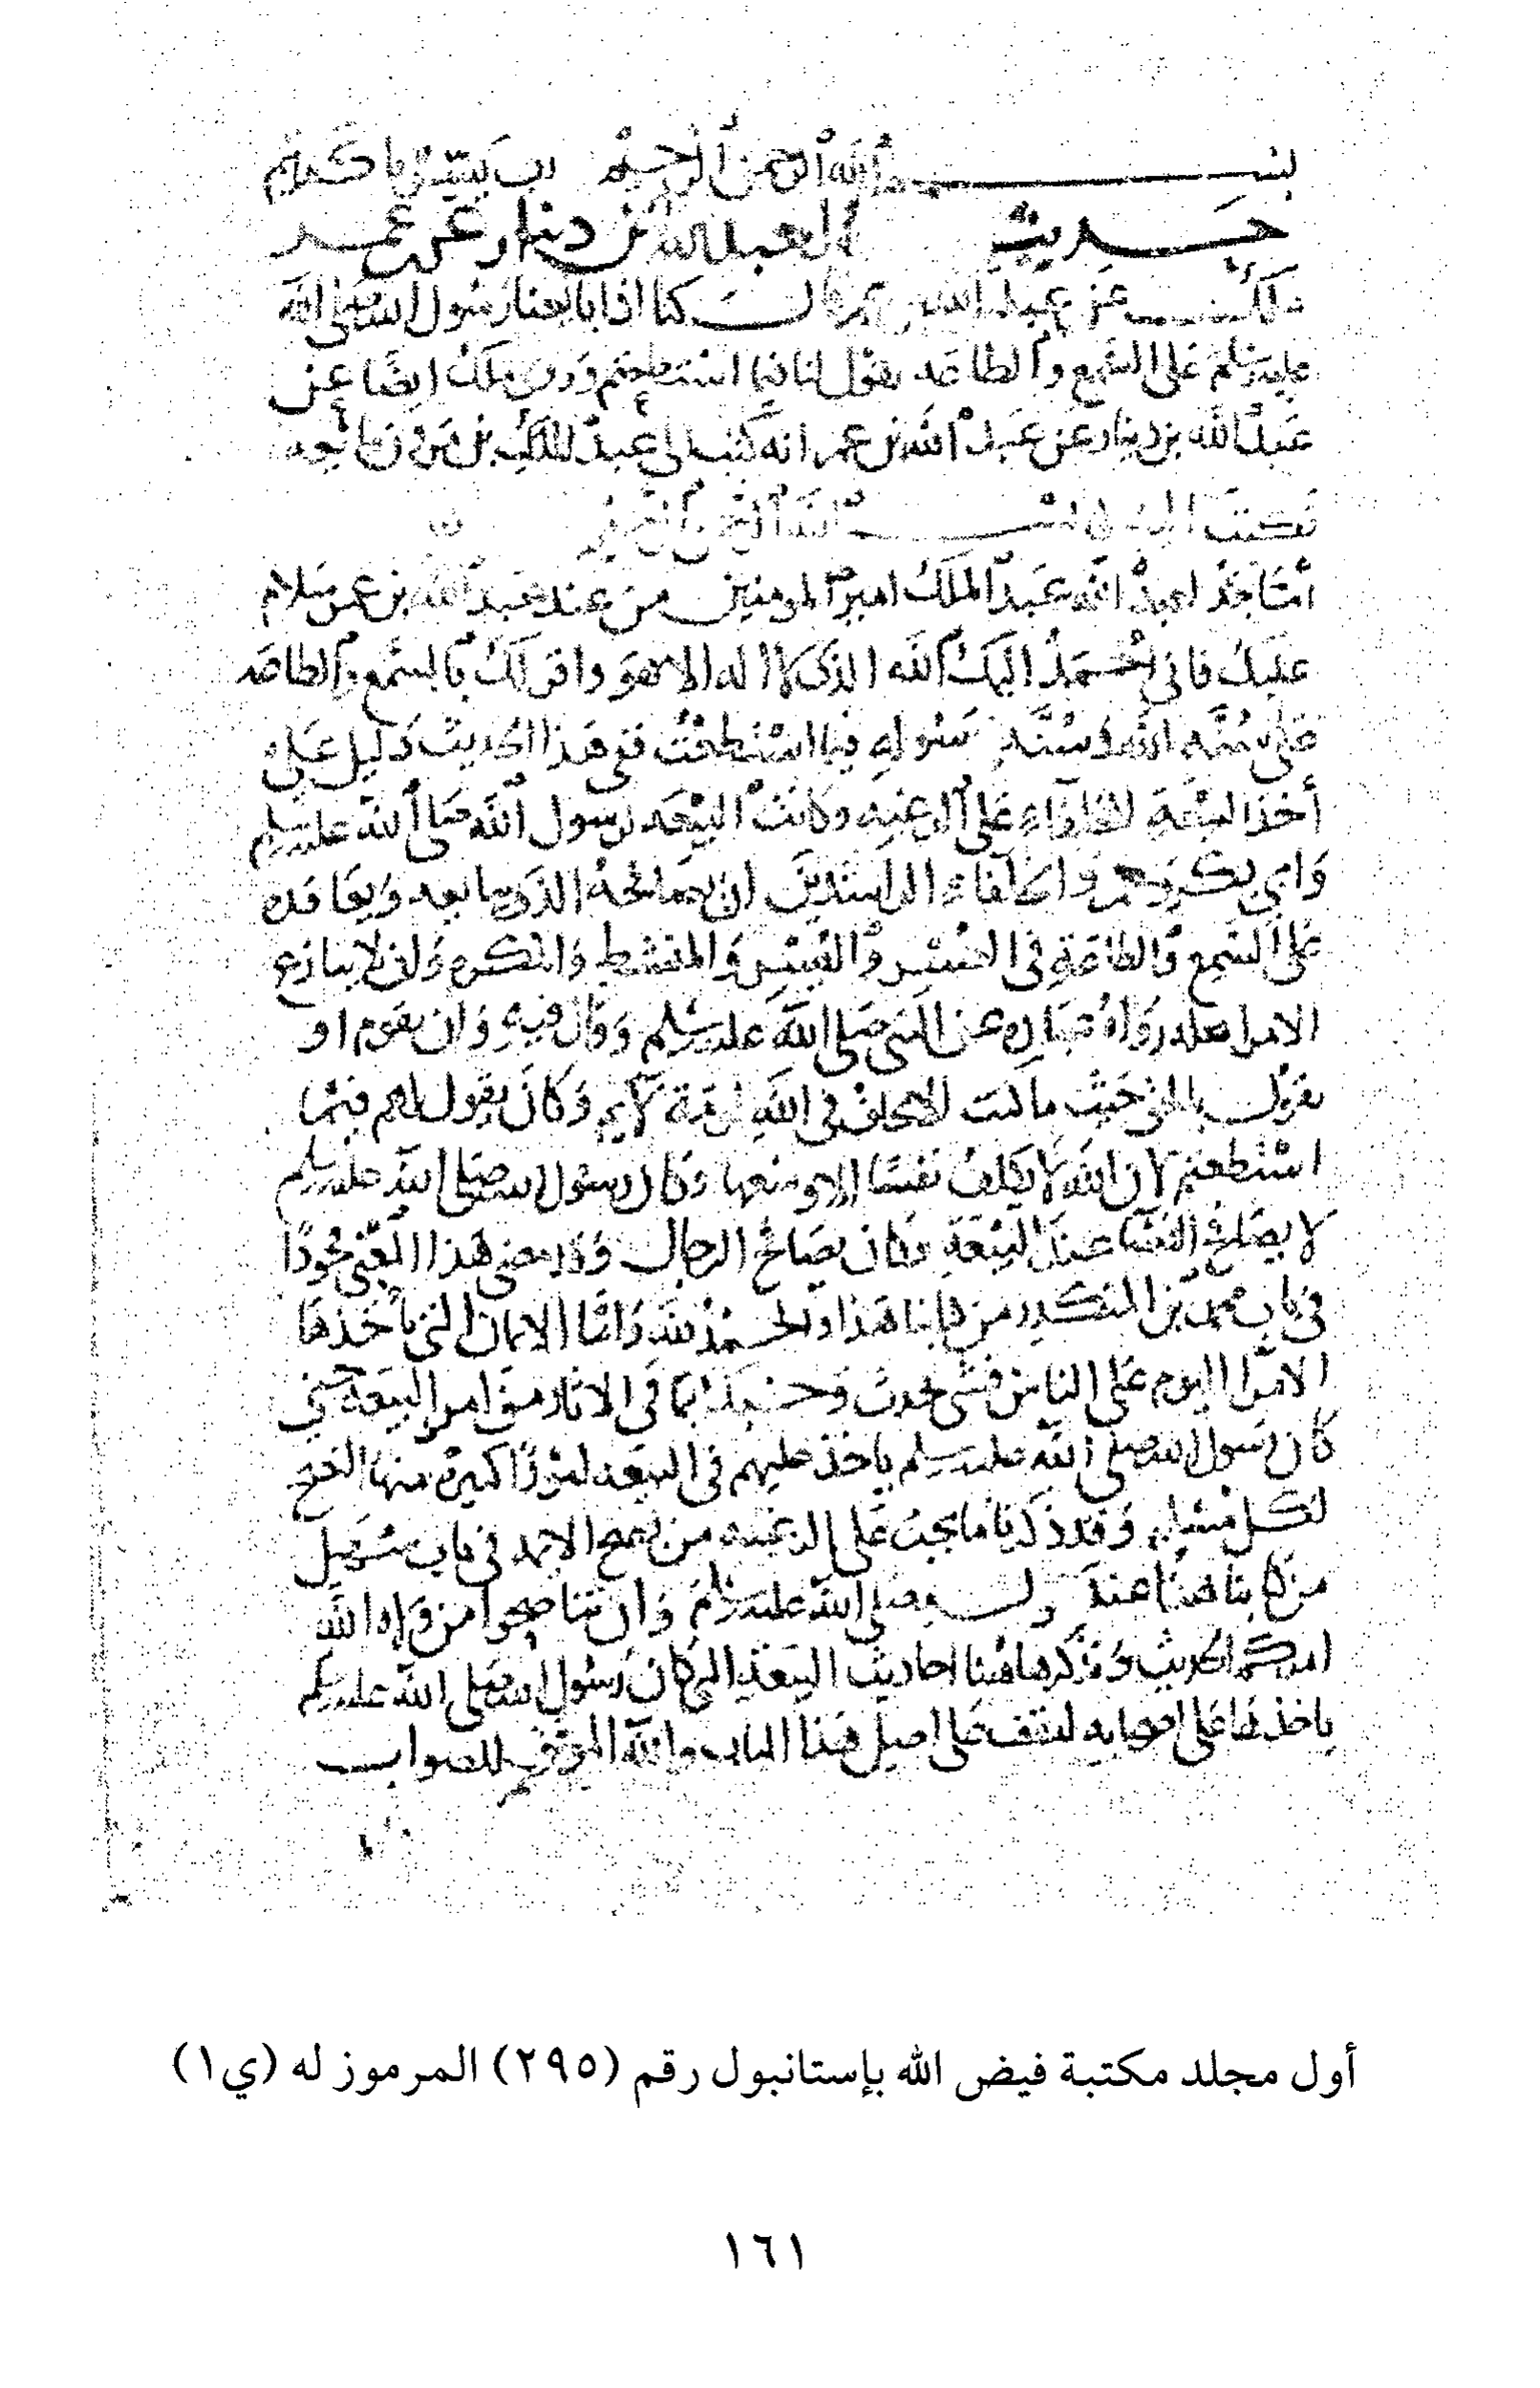 بسم الله الرحمن الرحيم رب يسر يا كريم
حديث لعبد الله بن دينار عن عمر
ملك عن عبد الله بن قال كنا اذا بايعنا رسول الله صلى الله
عليه وسلم على السمع والطاعه يقول لنا فيما استطعتم وروى ملك ايضا عن
عبد الله بن دينار عن عبد الله بن عمر انه كتب الى عبد الملك بن مرون يبايعه
فكتب اليه بسم الله الرحمن الرحيم
أما بعد لعبد الله عبد الملك امير المومنين من عند عبد الله بن عمر سلام
عليك فانى احمد اليك الله الذى لا اله الا هو واقر لك بالسمع والطاعه
على سنه الله وسنة رسوله فيما استطعت ففى هذا الحديث دليل على
أخذ البيعة للخلفاء على الرعيه وكانت البيعه لرسول الله صلى الله عليه وسلم
وابي بكر وعمر والخلفاء الراشدين ان يصافحه الذى يبايعه ويعاقده
على السمع والطاعة في العسر واليسر والمنشط والمكره وان لا ينازع
الامر اهله رواه عباده عن النبى صلى الله عليه وسلم وقال فيه وان يقوم او
يقول بالحق حيث ما كنت لا يخاف في الله لومة لايم وكان يقول لهم فيما
استطعتم لان الله لا يكلف نفسا الا وسعها وكان رسول الله صلى الله عليه وسلم
لا يصافح النسا عند البيعة وكان يصافح الرجال وقد مضى هذا المعنى مجودا
فى باب محمد بن المنكدر من كتابنا هذا والحمد لله واما الايمان التى ياخذها
الامرا اليوم على الناس فشى محدث وحسبك بما فى الاثار من امر البيعة حتى
كان رسول الله صلى الله عليه وسلم ياخذ عليهم فى البيعه امورا كثيره منها النصح
لكل مسلم وقد ذكرنا ما يجب على الرعيه من نصح الايمه فى باب سهيل
من كتابنا هذا عند قوله صلى الله عليه وسلم وان تناصحوا من ولاه الله
امركم الحديث ونذكر هاهنا احاديث البيعة التى كان رسول الله صلى الله عليه وسلم
ياخذها على اصحابه لتقف على اصل هذا الباب والله الموفق للصواب
أول مجلد مكتبة فيض الله بإستانبول رقم (٢٩٥) المرموز له (ي١)
١٦١